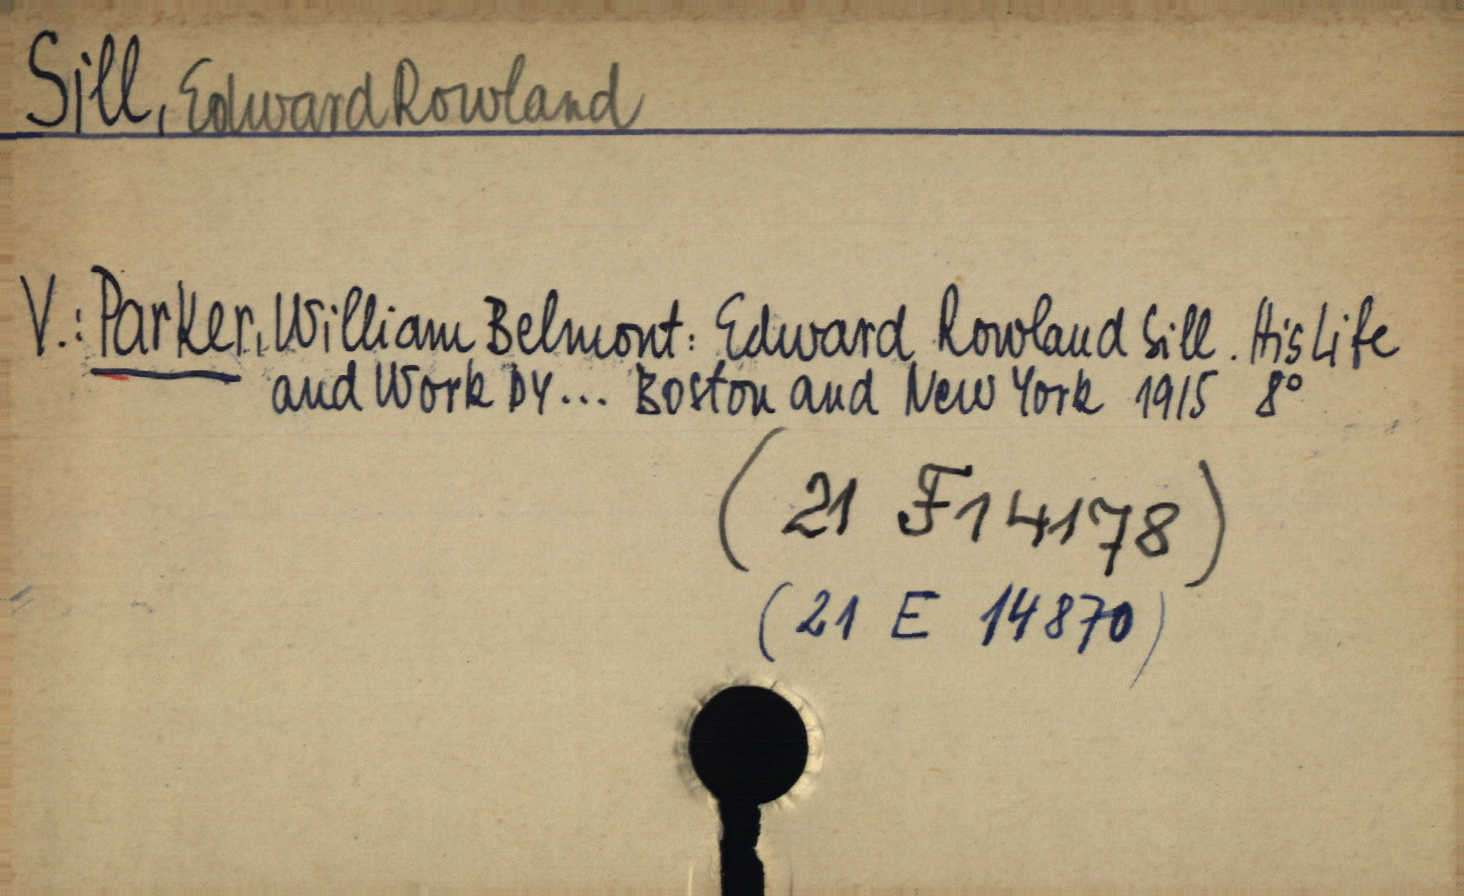 Sill, Edward Rowland
V.: Parker, William Belmont: Edward Rowland Sill. His Life
and Work by... Boston and New York 1915 8°
(21 F 14178)
(21 E 14870)